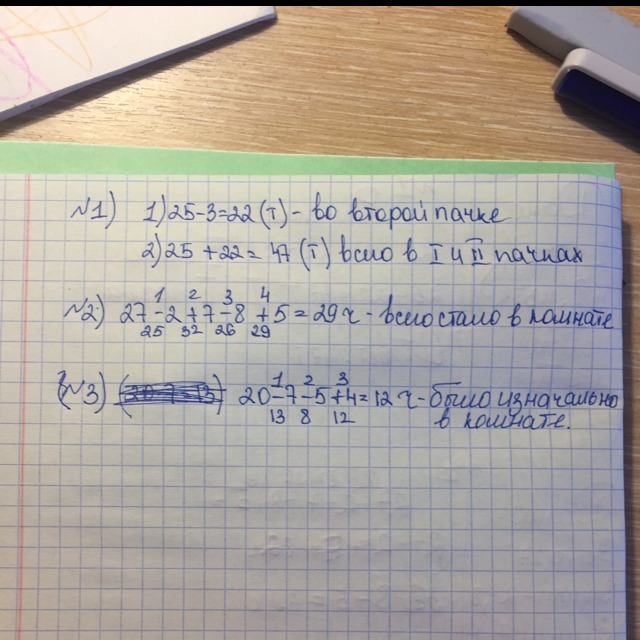 №1) 1) 25-3=22 (т) - во второй пачке
2) 25 + 22 = 47 (т) всего в I и II пачках
1 2 3 4
№2) 27-2+7-8+5=29 ч - всего стало в комнате
25 32 26 29
1 2 3
(№3) 20-7-5+4=12 ч - было изначально
13 8 12 в комнате.